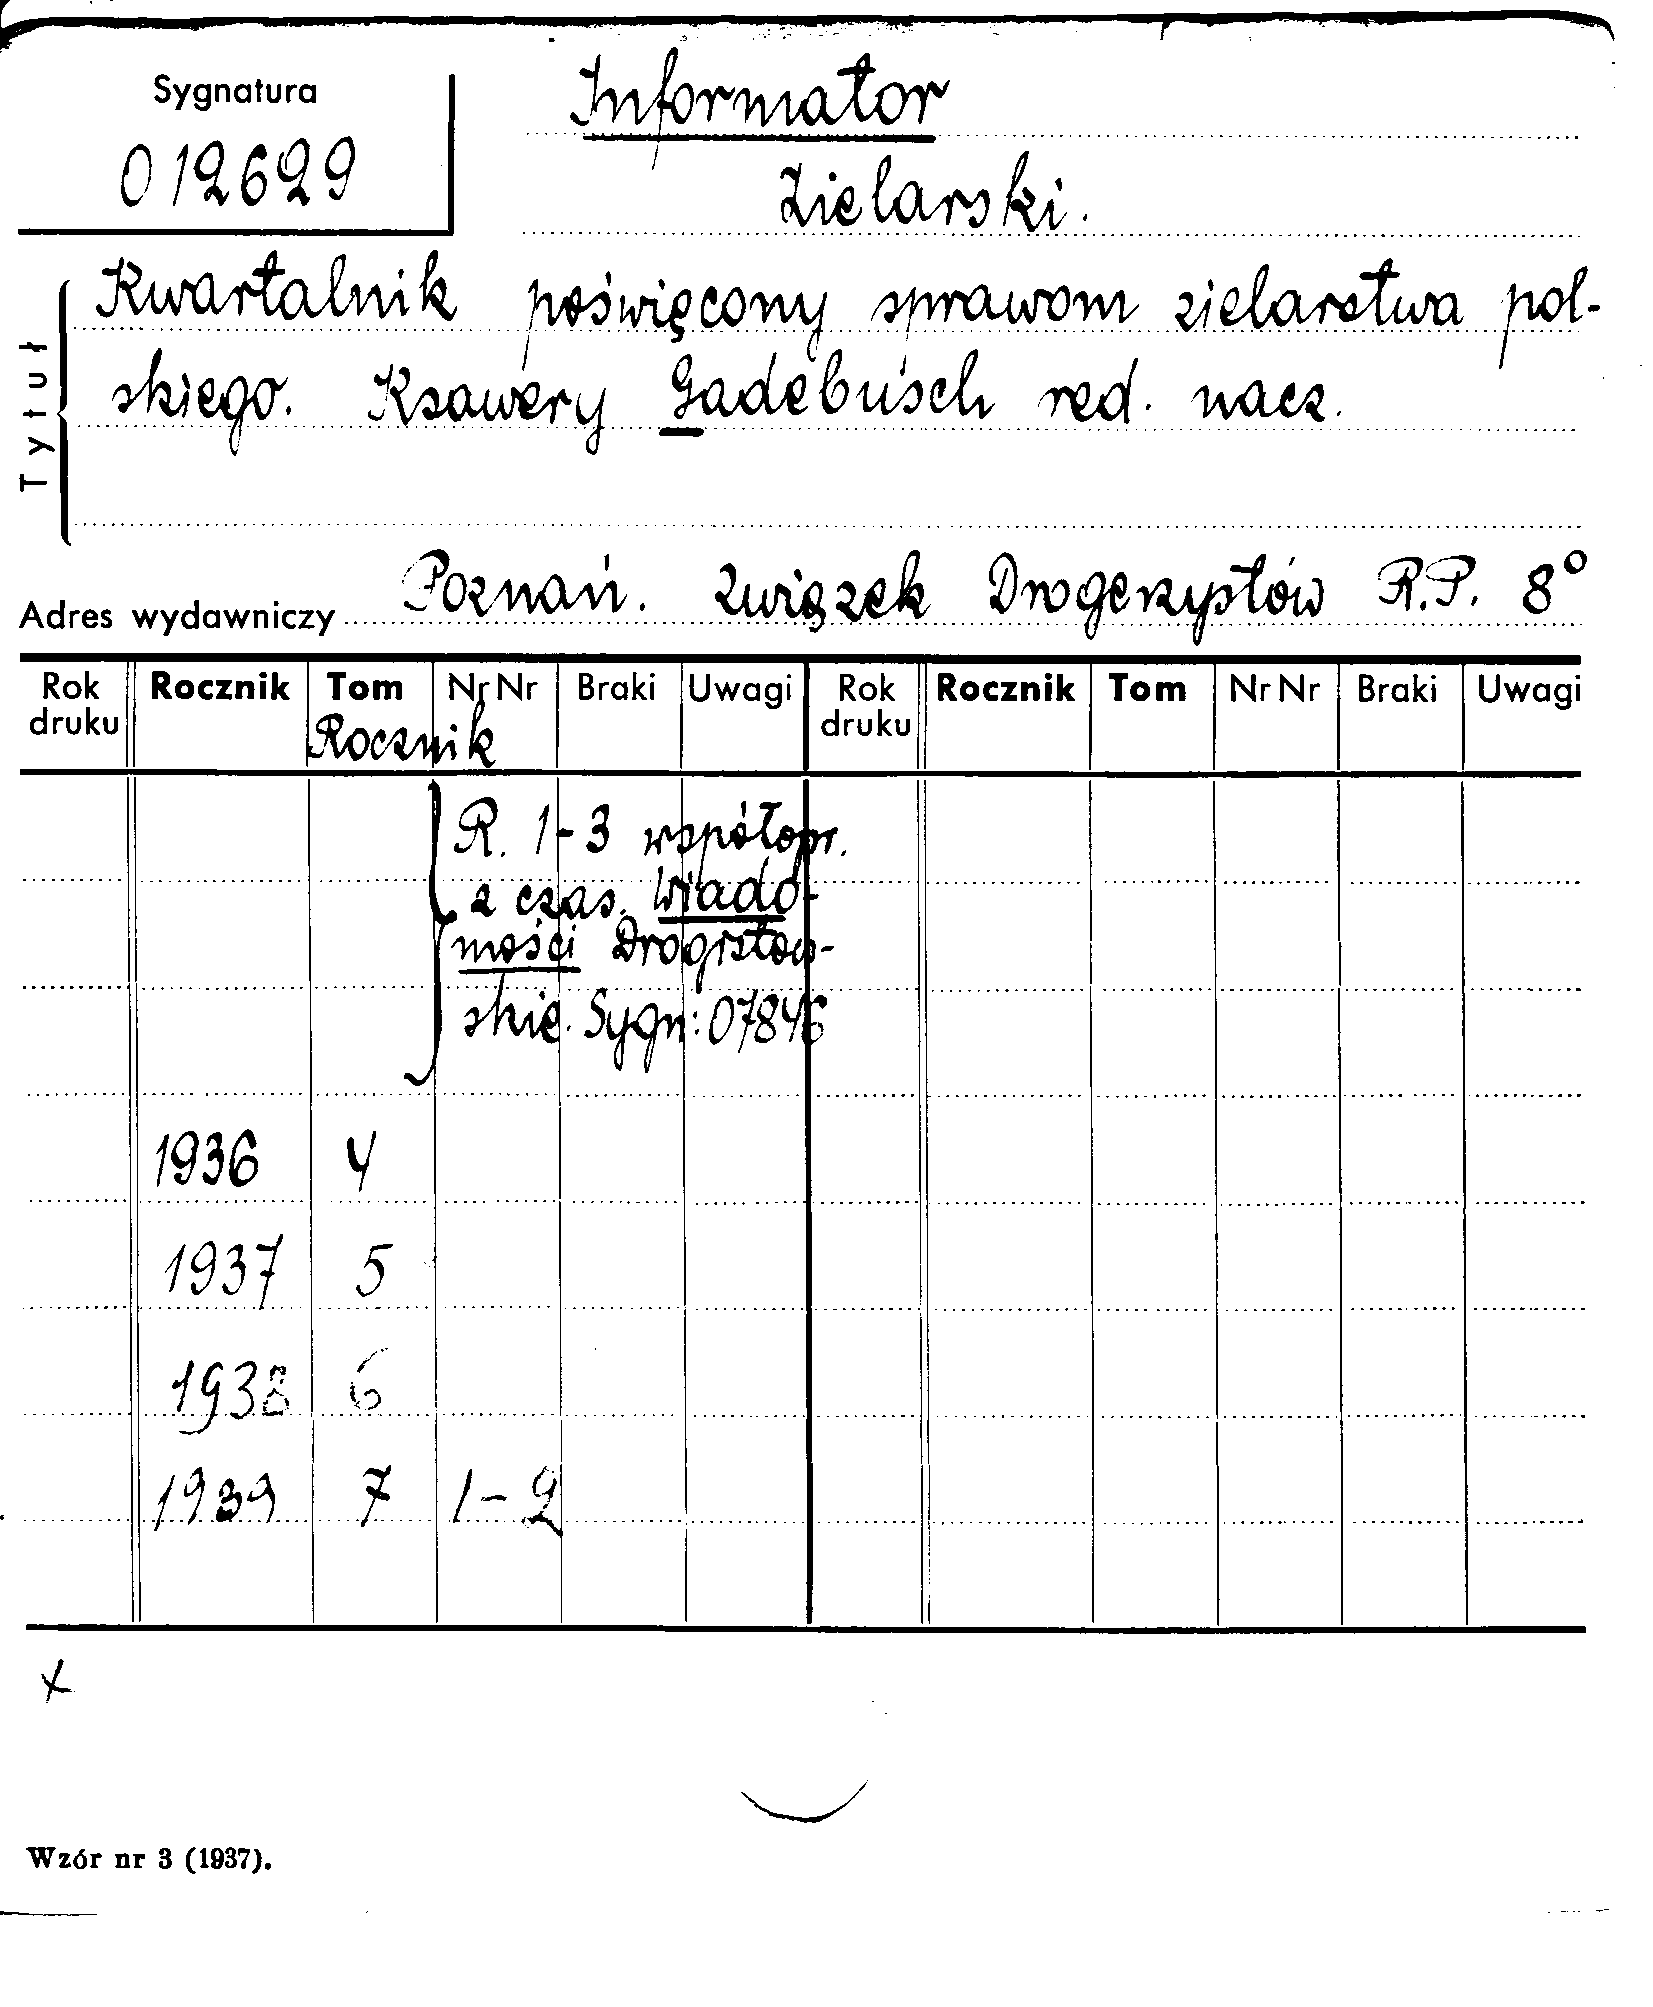 Sygnatura
012629
Informator
Zielarski.
Tytuł
Kwartalnik poświęcony sprawom zielarstwa pol-
skiego. Ksawery Gadebusch red. nacz.
Adres wydawniczy Poznań. Związek Drogerzystów R.P. 8°
Rok druku Rocznik Tom Nr Nr Braki Uwagi Rok druku Rocznik Tom Nr Nr Braki Uwagi
Rocznik
R. 1-3 współopr.
z czas. Wiado-
mości Drogistow-
skie. Sygn: 07846
1936 4
1937 5
1938 6
1939 7 1-2
x
Wzór nr 3 (1937).